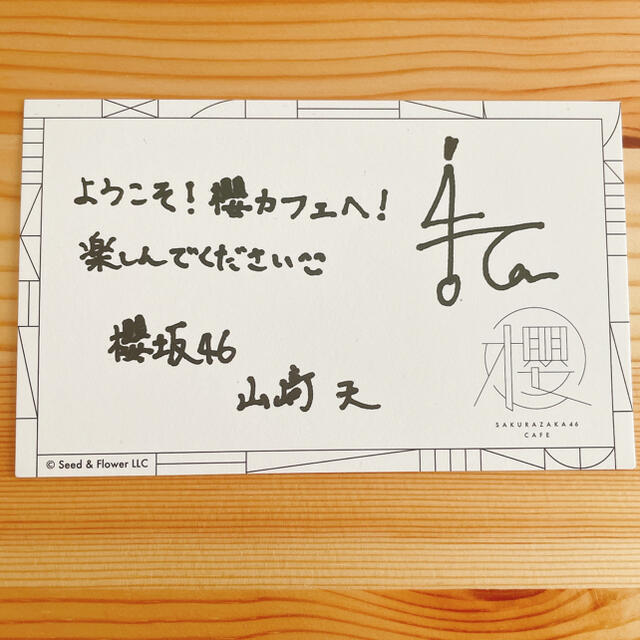 ようこそ！櫻カフェへ！
楽しんでください
櫻坂46
山﨑 天
櫻
SAKURAZAKA46
CAFE
© Seed & Flower LLC